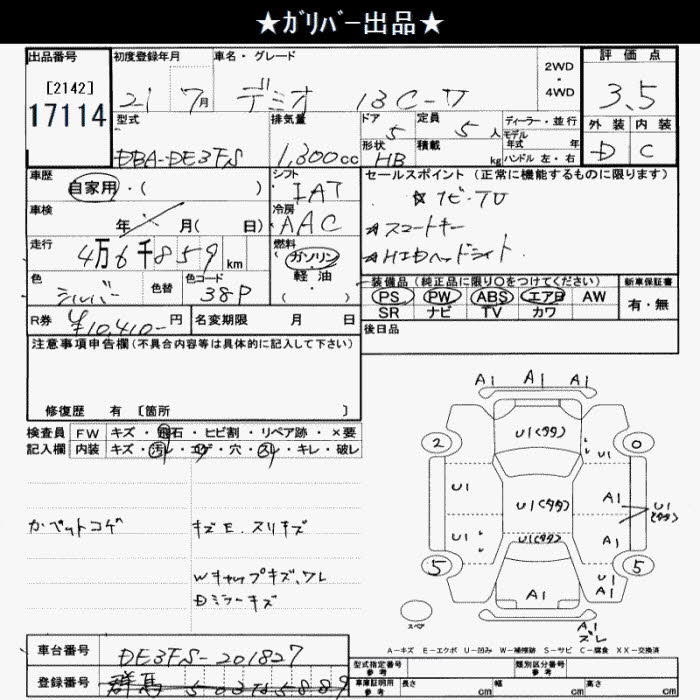 ★ｶﾞﾘﾊﾞｰ出品★
出品番号 初度登録年月 車名・グレード 2WD・4WD 評価点
[2142]
17114
21 7月 デミオ 13C-V 3.5
型式 排気量 ドア 5 定員 5人 ディーラー・並行
モデル年式 年
外装 内装
DBA-DE3FS 1,300cc 形状 HB 積載 kg ハンドル 左・右 D C
車歴 自家用・( )
シフト IAT
セールスポイント (正常に機能するものに限ります)
☆ナビ・TV
☆スマートキー
☆HIDヘッドライト
車検 年 月( 日)
冷房 AAC
走行 4万6千859km
燃料 ガソリン・軽油・( )
色 シルバー 色替 色コード 38P
装備品 (純正品に限り○をつけてください) 新車保証書
PS PW ABS エアB AW 有・無
SR ナビ TV カワ
R券 ¥10,410- 円 名変期限 月 日
後日品
注意事項申告欄(不具合内容等は具体的に記入して下さい)
修復歴 有 [箇所 ]
検査員 FW キズ・飛石・ヒビ割・リペア跡・×要
記入欄 内装 キズ・汚レ・コゲ・穴・スレ・キレ・破レ
カーペットコゲ
キズE、スリキズ
Wキャップキズ、ワレ
Dミラーキズ
A1 A1 A1
U1(タタ)
2 0
U1
U1 U1(タタ) A1 U1(タタ)
U1 U1(タタ) A1
5 5
U1
A1 A1
スペア
A1
ズレ
A－キズ E－エクボ U－凹み W－補修跡 S－サビ C－腐食 XX－交換済
車台番号 DE3FS-201827
型式指定番号 参考 類別区分番号 参考
登録番号 群馬
車庫証明用 参考 長さ cm 幅 cm 高さ cm